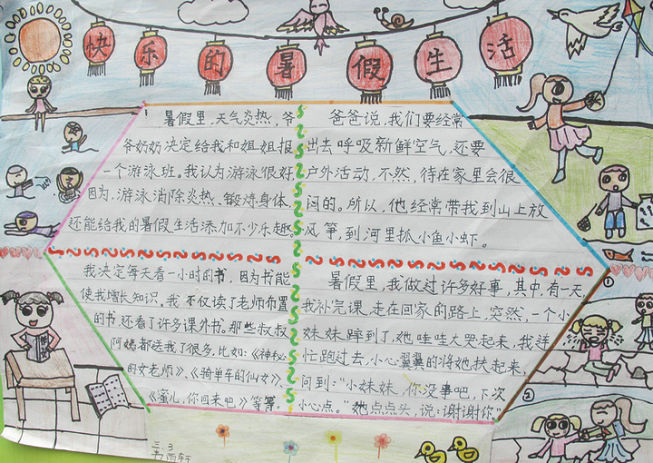 快乐的暑假生活
暑假里，天气炎热，爷
爷奶奶决定给我和姐姐报
一个游泳班。我认为游泳很好，
因为，游泳消除炎热、锻炼身体，
还能给我的暑假生活添加不少乐趣。
爸爸说，我们要经常
出去呼吸新鲜空气，还要
户外活动，不然，待在家里会很
闷的。所以，他经常带我到山上放
风筝，到河里抓小鱼小虾。
我决定每天看一小时的书，因为书能
使我增长知识。我不仅读了老师布置
的书，还看了许多课外书。那些叔叔
阿姨都送我了很多，比如：《神秘
的女老师》、《骑单车的仙女》、
《蜜儿，你回来吧》等等。
暑假里，我做过许多好事，其中，有一天，
我补完课，走在回家的路上，突然，一个小
妹妹摔到了，她哇哇大哭起来，我连
忙跑过去，小心翼翼的将她扶起来，
问到：“小妹妹，你没事吧，下次
小心点。”她点点头，说：谢谢你”
①
②
三.3
雨轩